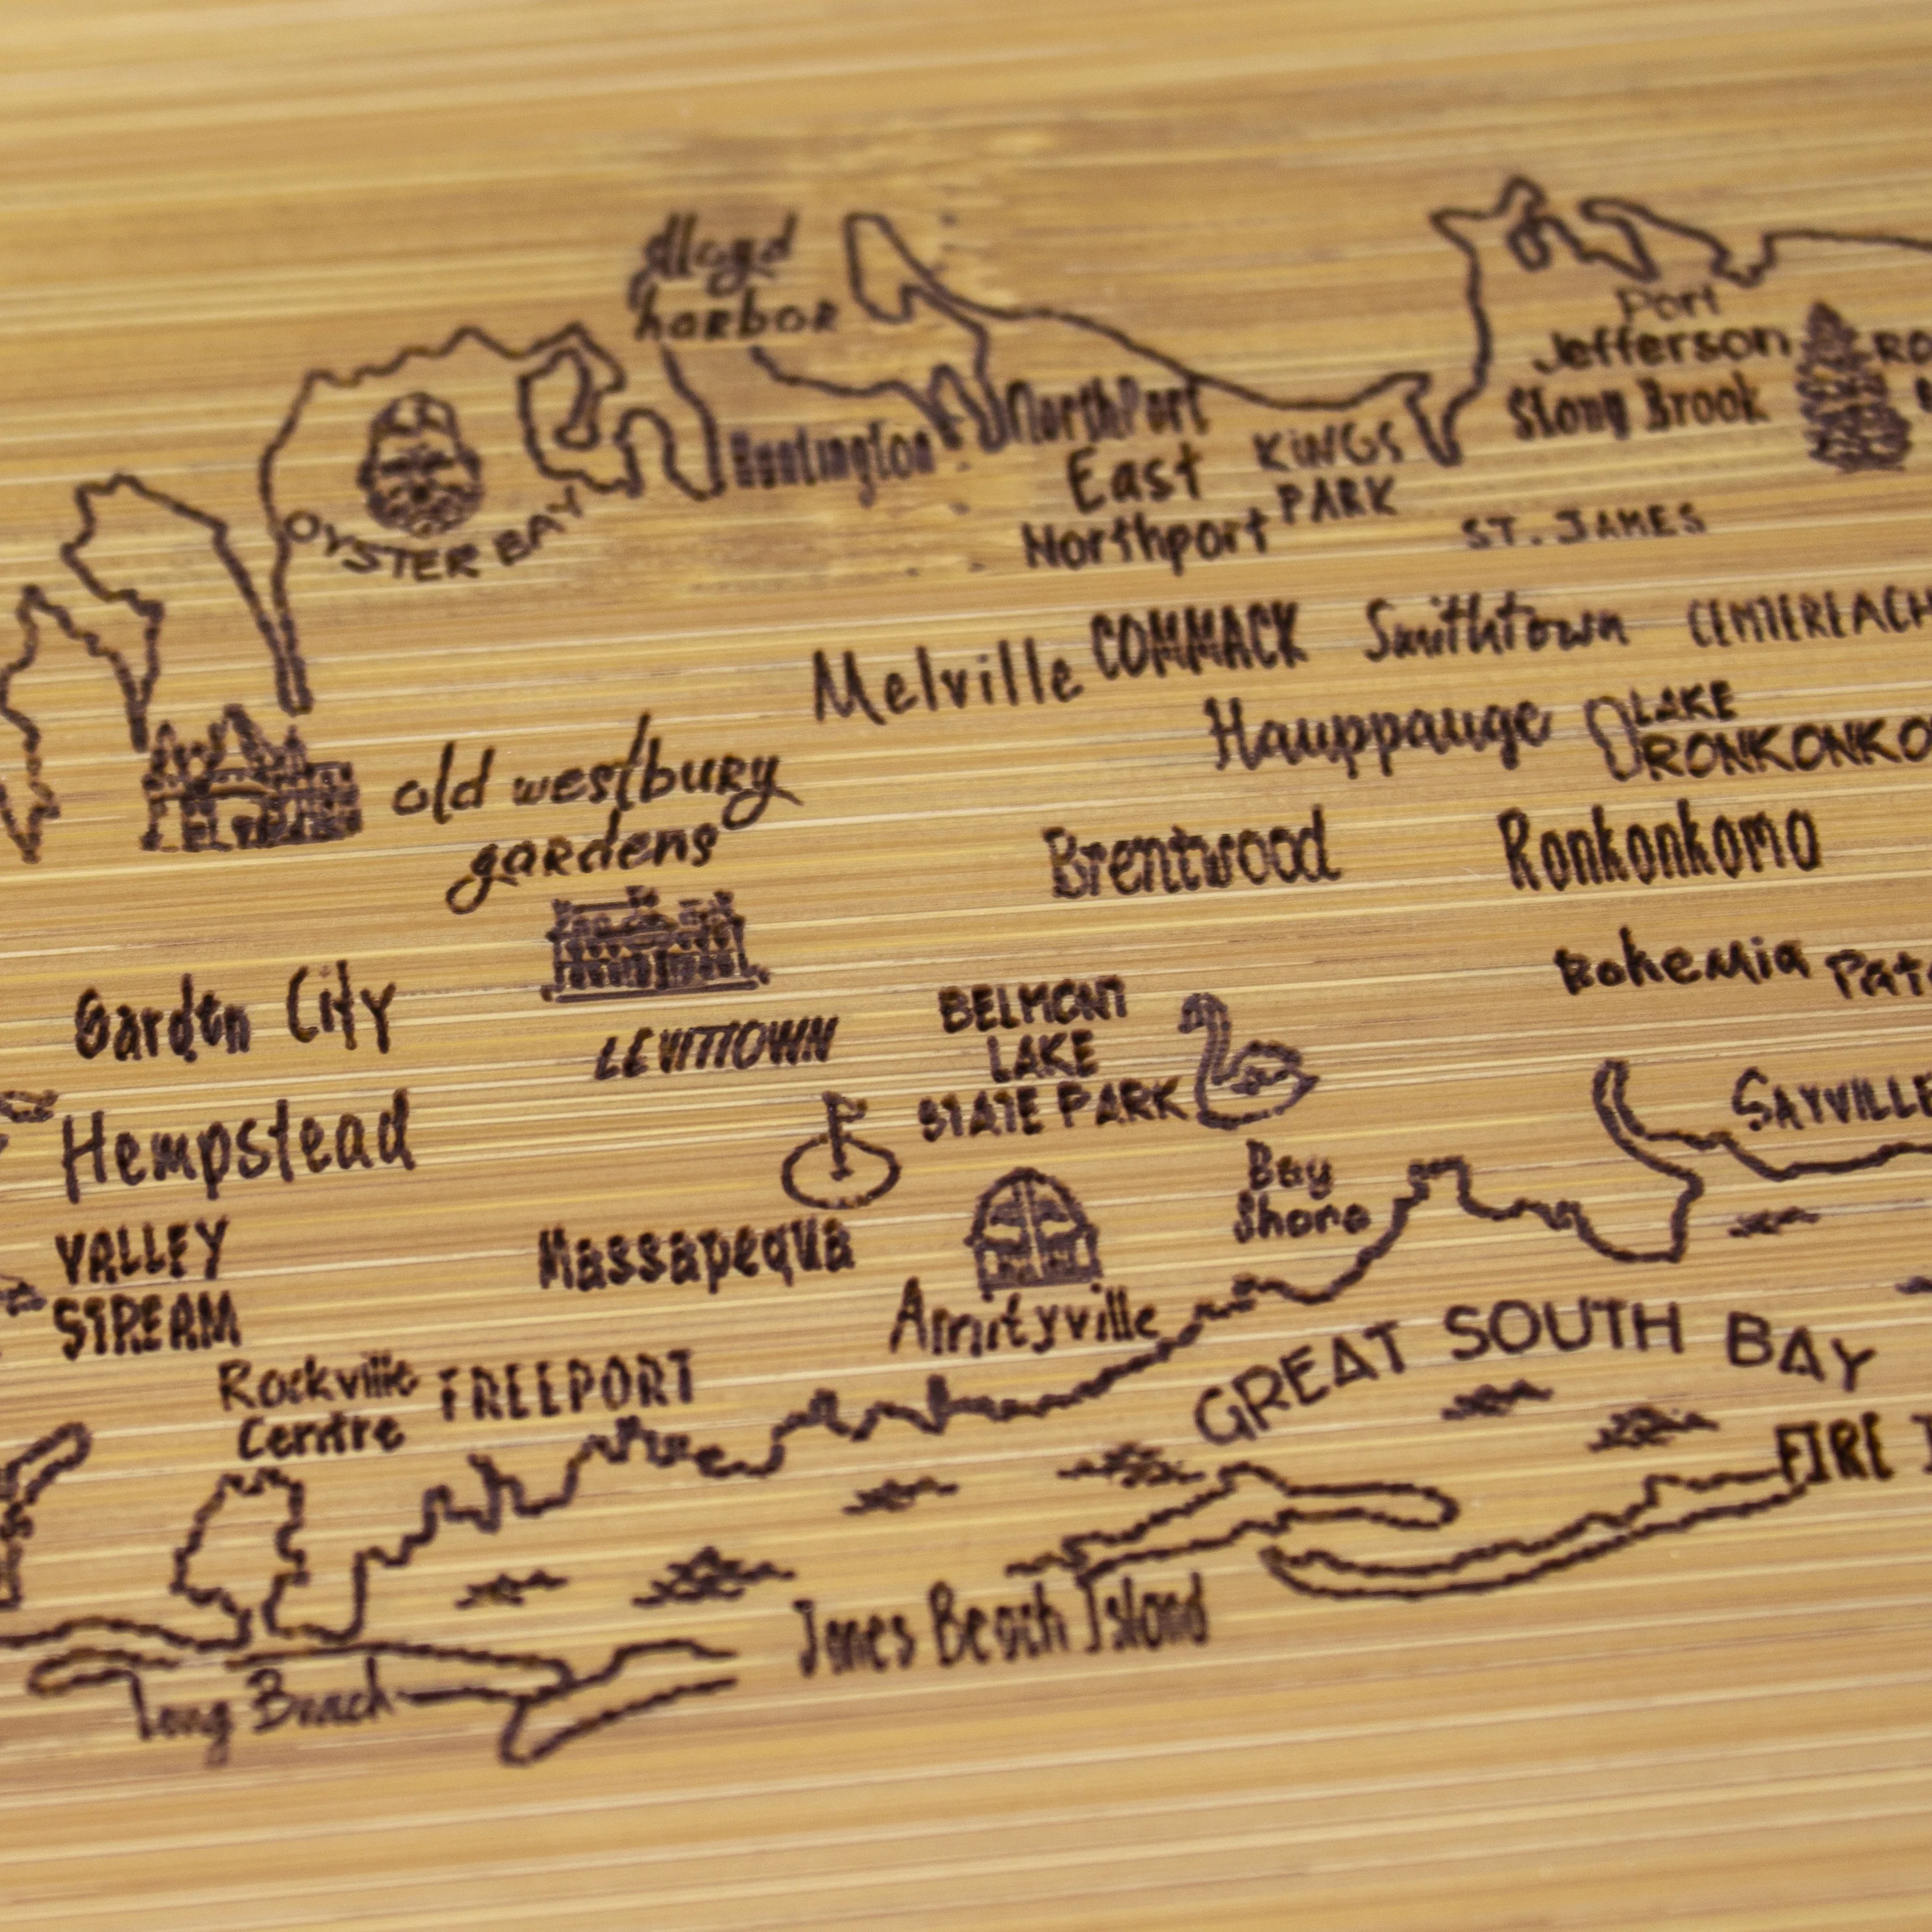 Lloyd
harbor
Port
Jefferson
Stony Brook
Huntington
NorthPort
East
Northport
KINGS
PARK
OYSTER BAY
ST. JAMES
Melville
COMMACK
Smithtown
CENTEREACH
Hauppauge
LAKE
RONKONKO
old westbury
gardens
Brentwood
Ronkonkoma
Bohemia
Garden City
LEVITTOWN
BELMONT
LAKE
STATE PARK
SAYVILLE
Hempstead
Bay
Shore
VALLEY
STREAM
Massapequa
Amityville
GREAT SOUTH BAY
Rockville
Centre
FREEPORT
FIRE
Jones Beach Island
Long Beach